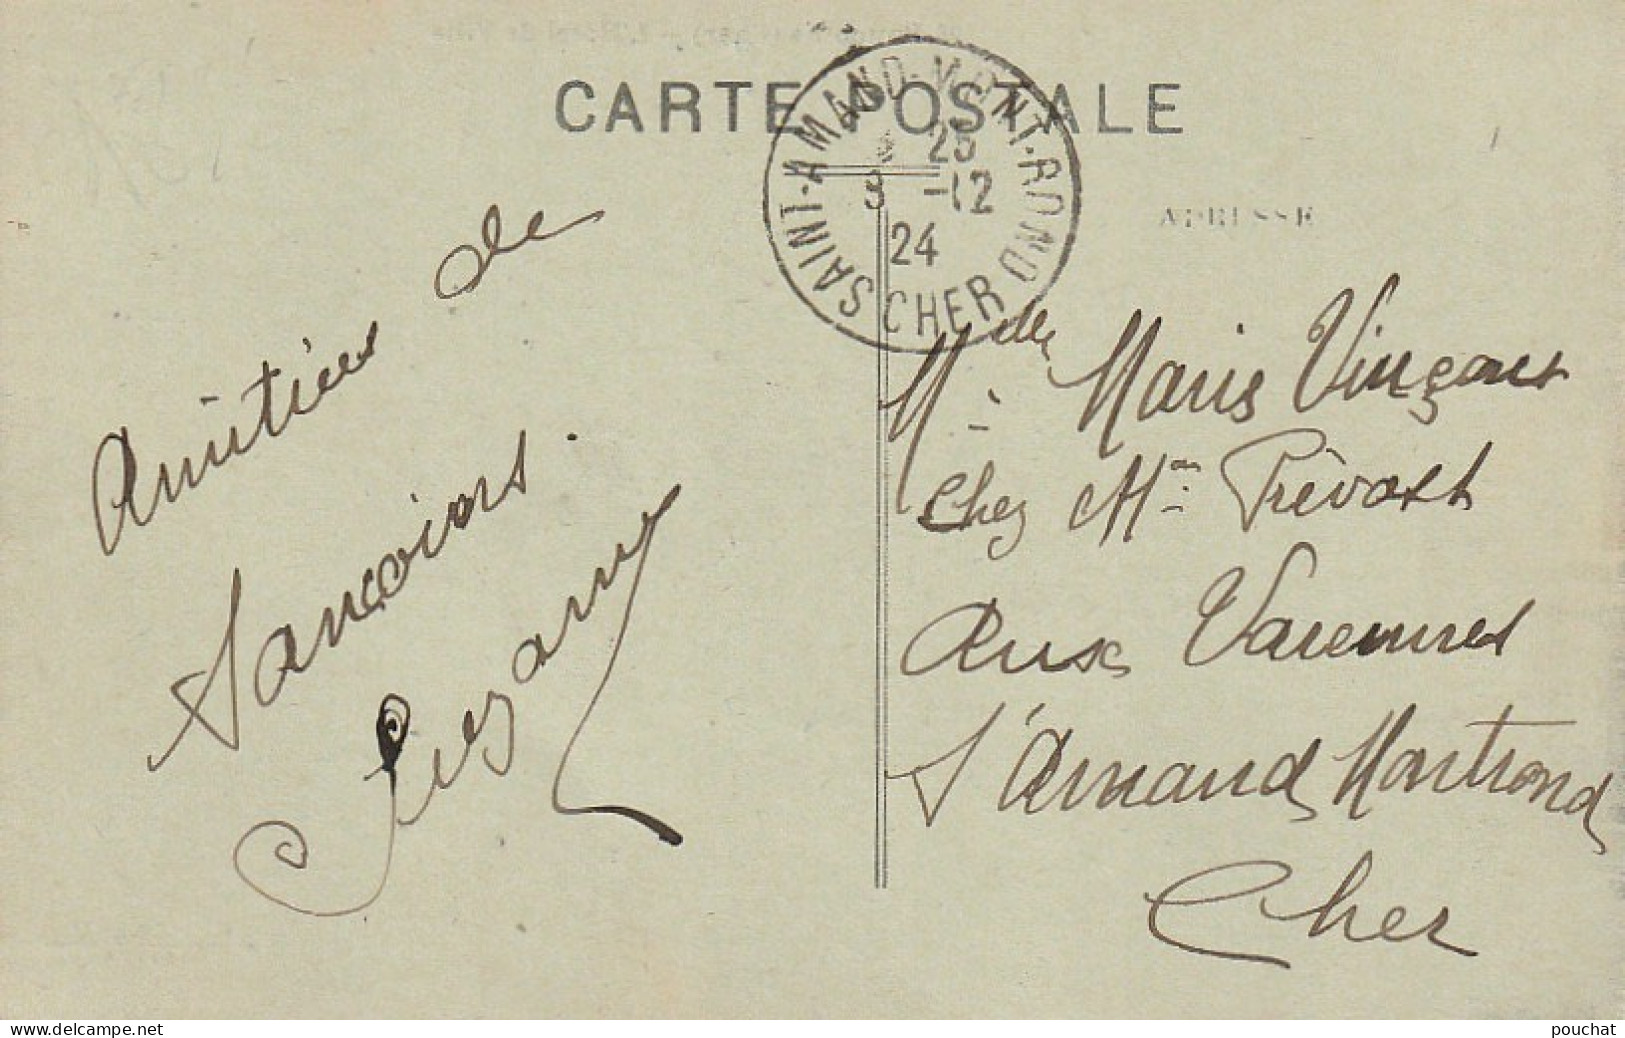 CARTE POSTALE
SAINT-AMAND-MONT-ROND
25
3 -12
24
CHER
ADRESSE
Amitiées de
Sancoins.
Suzanne
Melle Marie Vinçons
Chez Mme Prévost
Aux Varennes
St Amand Montrond
Cher
www.delcampe.net
pouchat